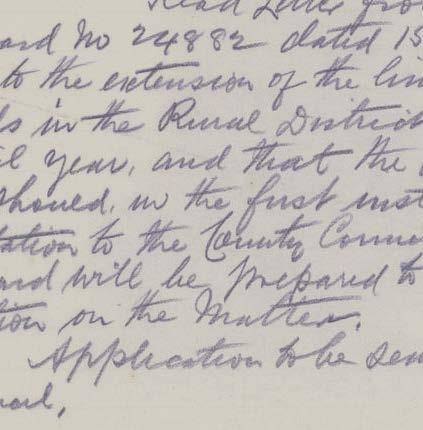 Read Letter fro
ard No 24882 dated 15
to the extension of the lim
ds in the Rural District
il year, and that the
should, in the first inst
tation to the County Counc
ard will be prepared to
tion on the Matter.
Application to be sen
ncil,